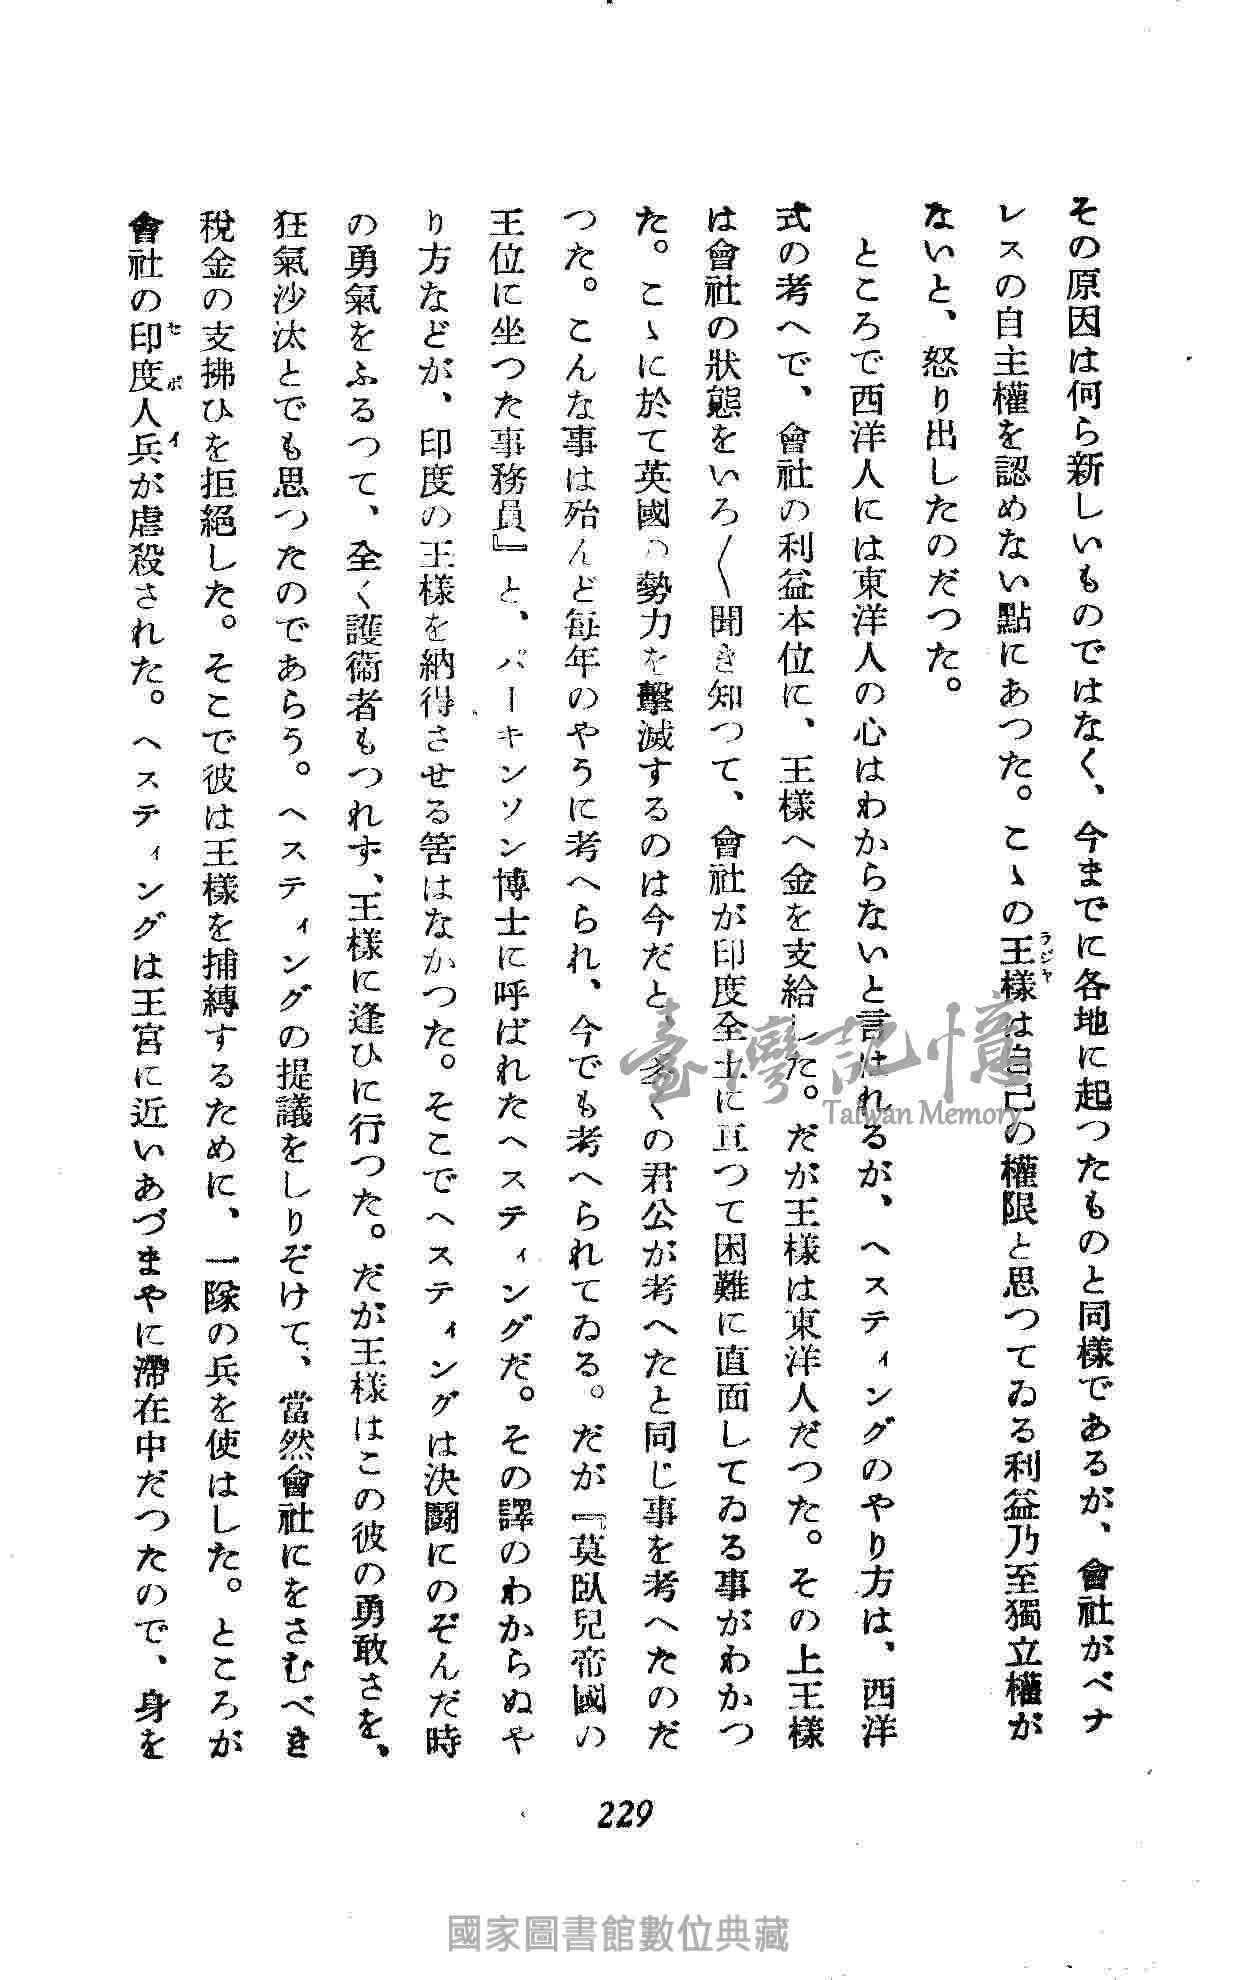 その原因は何ら新しいものではなく、今までに各地に起つたものと同樣であるが、會社がベナ
レスの自主權を認めない點にあつた。こゝの王樣は自己の權限と思つてゐる利益乃至獨立權が
ラジヤ
ないと、怒り出したのだつた。
ところで西洋人には東洋人の心はわからないと言はれるが、ヘスティングのやり方は、西洋
式の考へで、會社の利益本位に、王樣へ金を支給した。だが王樣は東洋人だつた。その上王樣
は會社の狀態をいろ〳〵聞き知つて、會社が印度全土に亘つて困難に直面してゐる事がわかつ
た。こゝに於て英國の勢力を擊滅するのは今だと、多くの君公が考へたと同じ事を考へたのだ
つた。こんな事は殆んど每年のやうに考へられ、今でも考へられてゐる。だが『莫臥兒帝國の
王位に坐つた事務員』と、パーキンソン博士に呼ばれたヘスティングだ。その譯のわからぬや
り方などが、印度の王樣を納得させる筈はなかつた。そこでヘスティングは決鬪にのぞんだ時
の勇氣をふるつて、全く護衞者もつれず、王樣に逢ひに行つた。だが王樣はこの彼の勇敢さを、
狂氣沙汰とでも思つたのであらう。ヘスティングの提議をしりぞけて、當然會社にをさむべき
稅金の支拂ひを拒絕した。そこで彼は王樣を捕縛するために、一隊の兵を使はした。ところが
會社の印度人兵が虐殺された。ヘスティングは王宮に近いあづまやに滯在中だつたので、身を
セポイ
229
臺灣記憶
Taiwan Memory
國家圖書館數位典藏